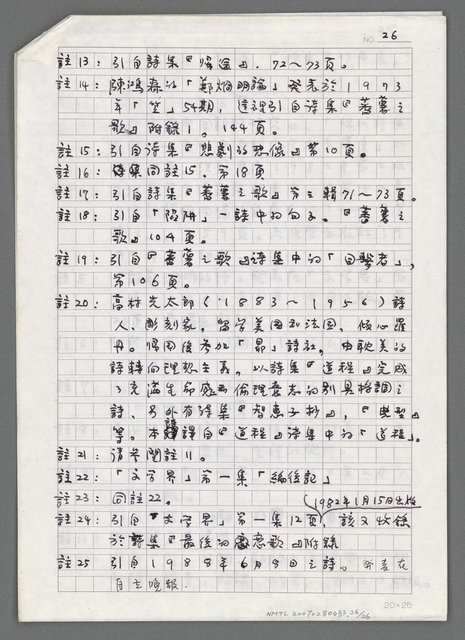 NO. 26
註13：引自詩集『歸途』．72～73頁。
註14：陳鴻森的「鄭烱明論」發表於1973
年「笠」54期，這裡引自詩集『蕃薯之
歌』附錄1。144頁。
註15：引自詩集『悲劇的想像』第10頁。
註16：同註15．第18頁
註17：引自詩集『蕃薯之歌』第三輯71～73頁。
註18：引自「陷阱」一詩中的句子。『蕃薯之
歌』104頁。
註19：引自『蕃薯之歌』詩集中的「目擊者」，
第106頁。
註20：高村光太郎（1883～1956）詩
人、彫刻家，留學美國到法國，傾心羅
丹。歸國後參加「昴」詩社，由耽美的
詩轉向理想主義。以詩集『道程』完成
了充滿生命感而倫理意志的別具格調之
詩，另外有詩集『智惠子抄』，『典型』
等。本詩譯自『道程』詩集中的「道程」。
註21：請參閱註11。
註22：「文學界」第一集「編後記」
註23：同註22。
1982年1月15日出版
註24：引自「文學界」第一集12頁，該文收錄
於詩集『最後的戀歌』附錄
註25 引自1988年6月8日之詩。發表在
自立晚報．
20×25
NMTL20070280033.26/26